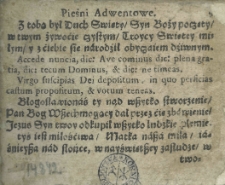 Pieśni Adwentowe.
Z tobą był Duch Swięty / Syn Boży poczęty /
w twym żywocie czystym / Troycy Swiętey mi-
łym / z ciebie sie národził obyczáiem dziwnym.
Accede nuncia, dic: Ave cominus dic: plena gra-
tia, dic: tecum Dominus, & dic: ne timeas.
Virgo suscipias Dei depositum, in quo perficias
castum propositum, & votum teneas.
Błogosłáwionáś ty nád wszytko stworzenie /
Pan Bog Wszechmogący dał przez cie zbáwienie/
Jezus Syn twoy odkupił wszytko ludzkie plemie-
tyś iest miłościwa / Mátká nászá miłá / iá-
śnieyszá nád słońce / w naywiętszey zasłudze / w
two-